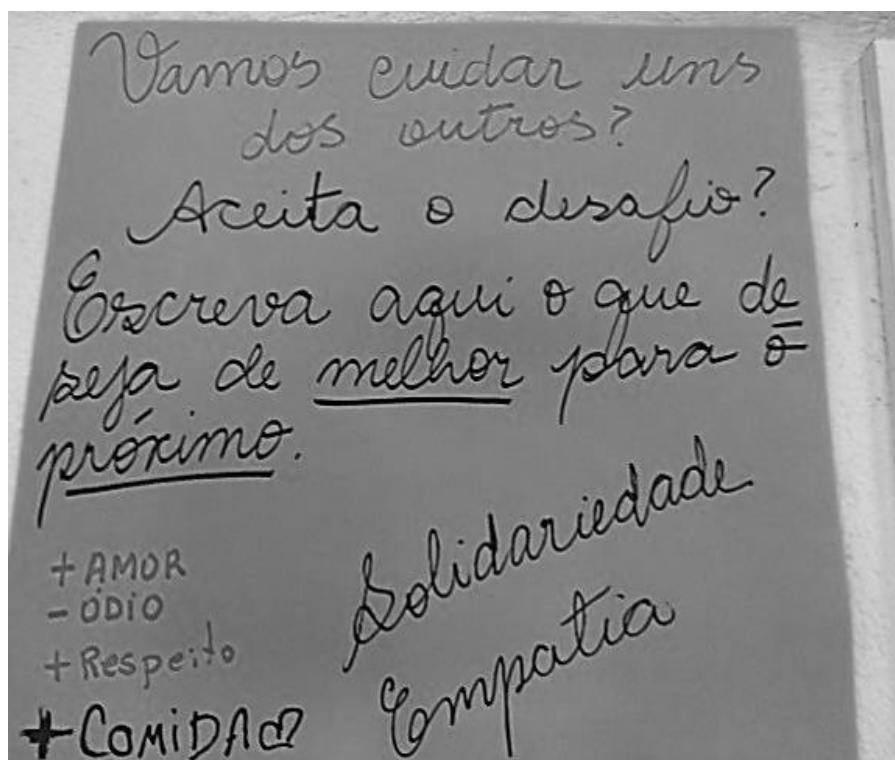 Vamos cuidar uns
dos outros?
Aceita o desafio?
Escreva aqui o que de
seja de melhor para o
próximo.
+ AMOR
- ÓDIO
+ Respeito
+ COMiDA
Solidariedade
Empatia